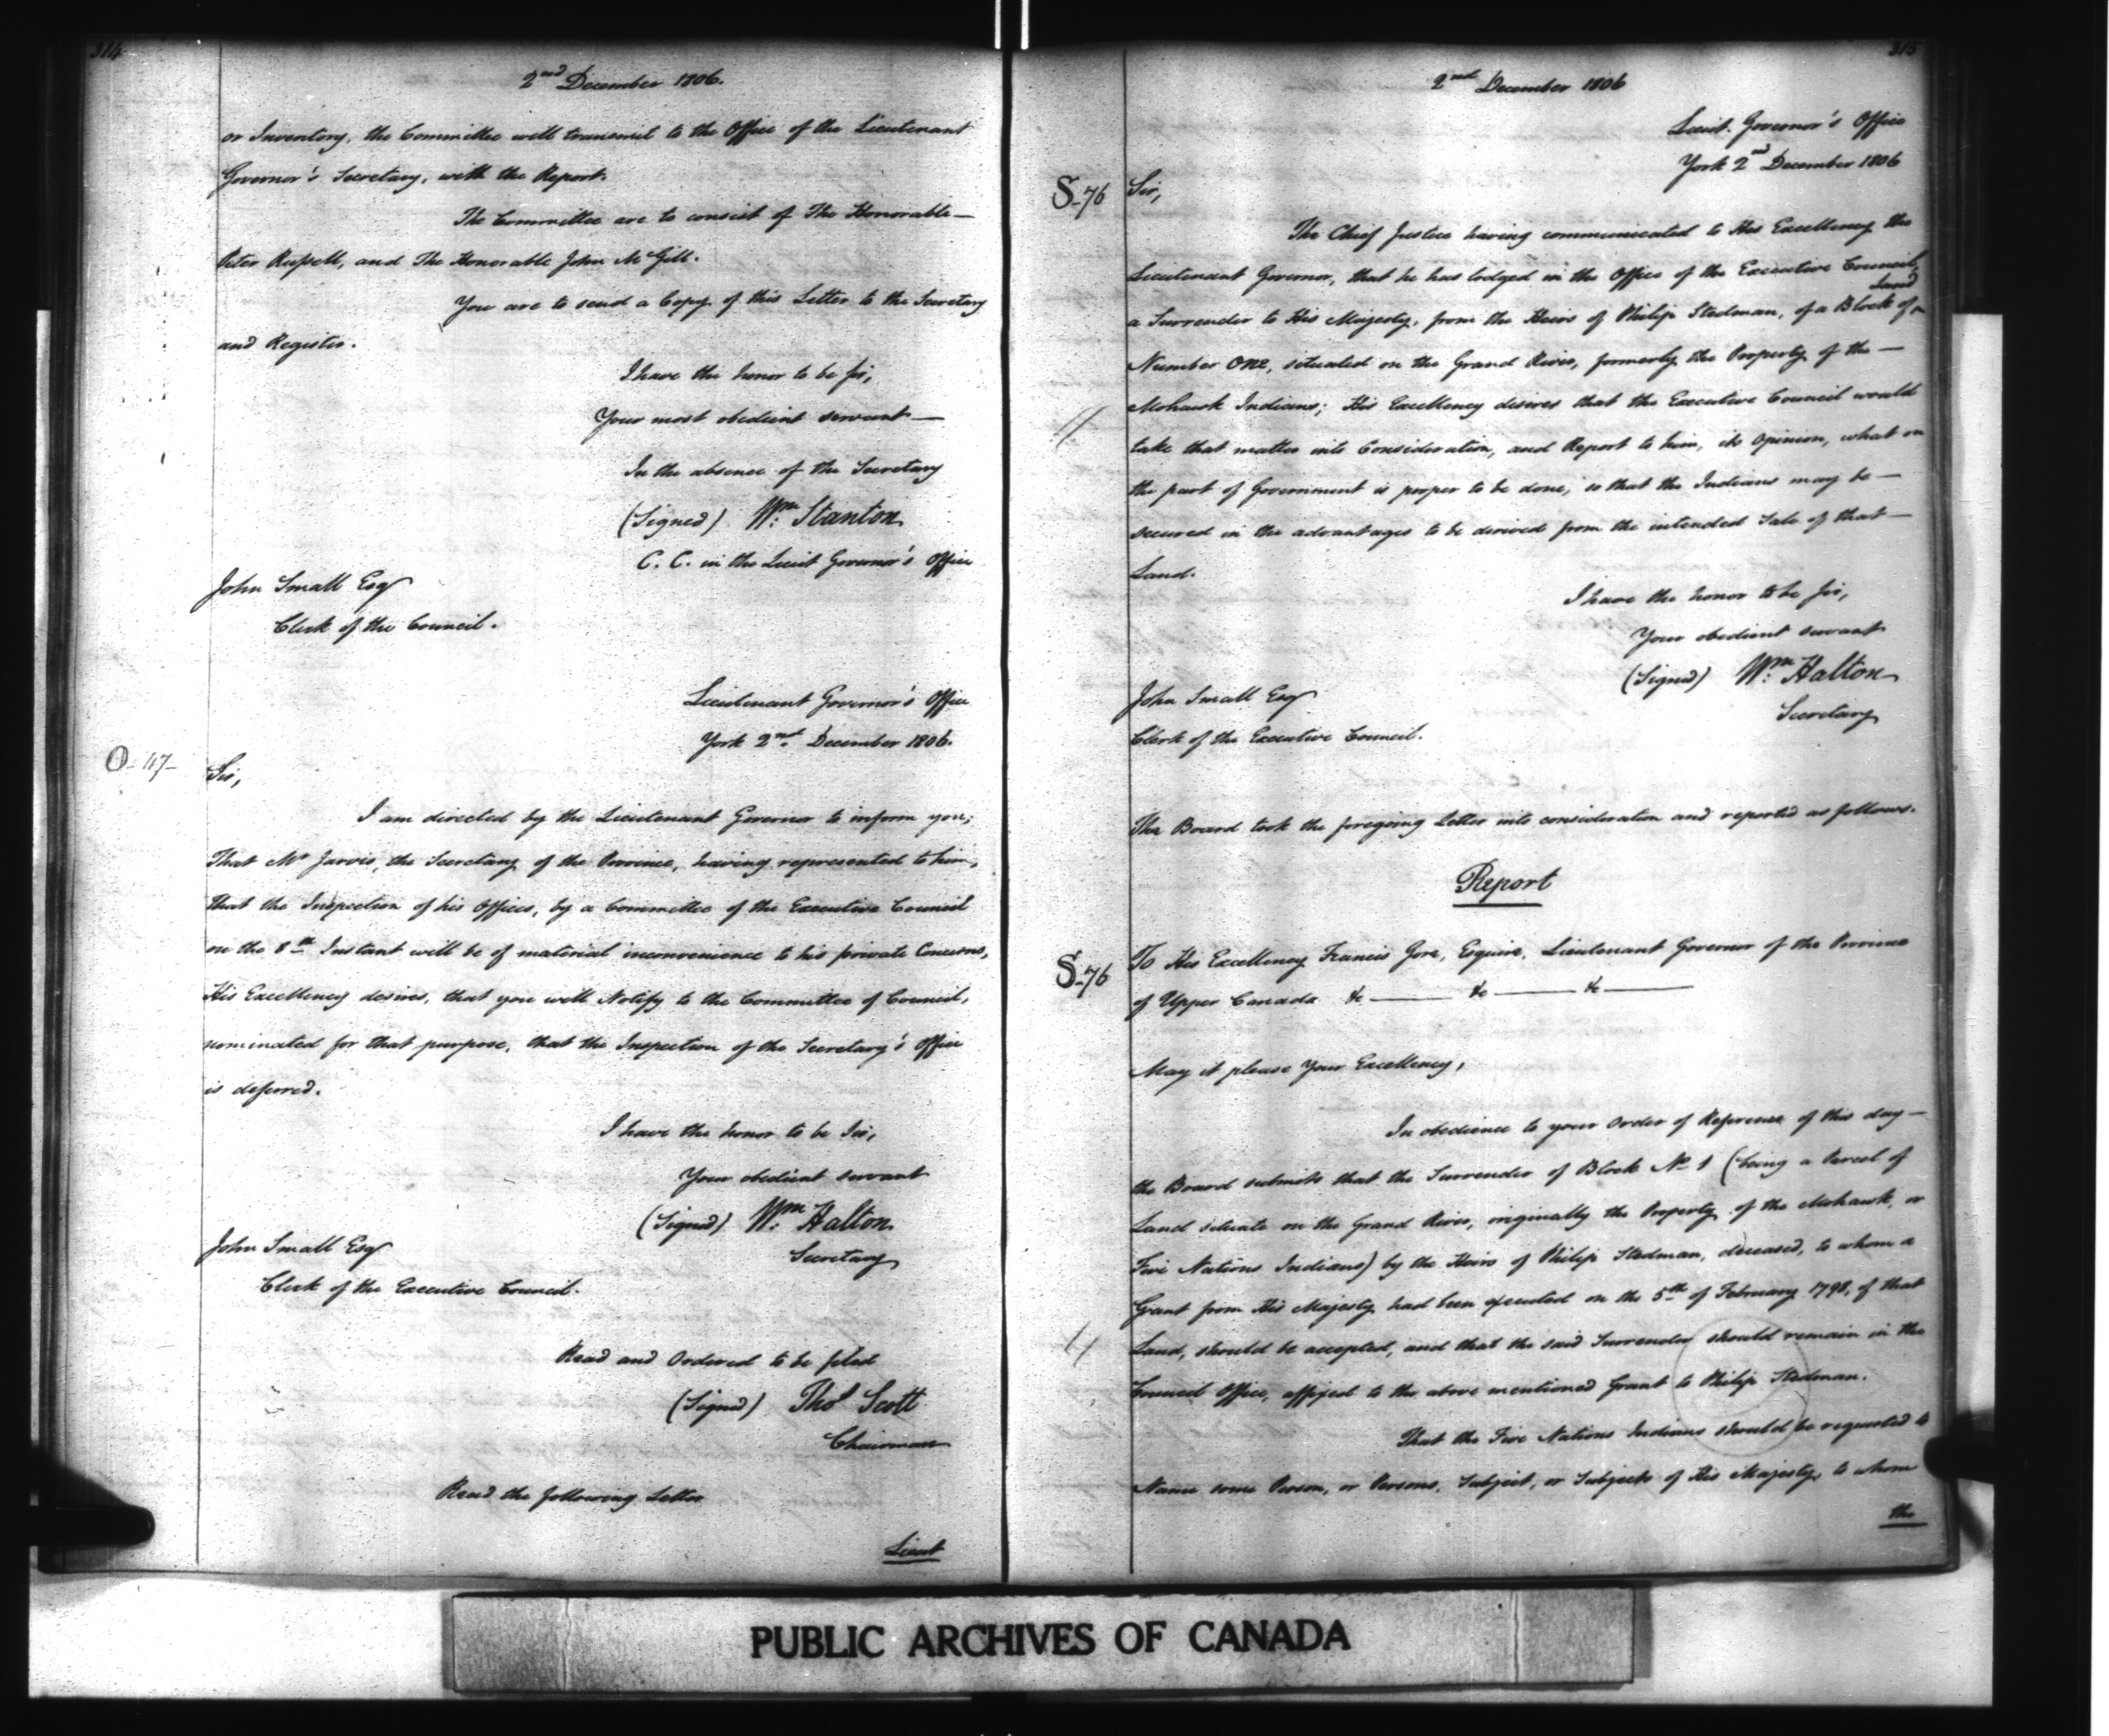 314
2nd December 1806.
or Inventory, the Committee will transmit to the Office of the Lieutenant
Governor's Secretary, with the Report.
The Committee are to consist of The Honorable —
Peter Russell, and The Honorable John McGill.
You are to send a Copy of this Letter to the Secretary
and Register.
I have the honor to be Sir,
Your most obedient servant —
In the absence of the Secretary
(Signed) Wm. Stanton
C. C. in the Lieut Governor's Office
John Small Esqr
Clerk of the Council.
Lieutenant Governor's Office
York 2nd. December 1806.
O-47-
Sir,
I am directed by the Lieutenant Governor to inform you;
That Mr Jarvis, the Secretary of the Province, having represented to him,
that the Inspection of his Offices, by a Committee of the Executive Council
on the 8th Instant will be of material inconvenience to his private Concerns,
His Excellency desires, that you will Notify to the Committee of Council,
nominated for that purpose, that the Inspection of the Secretary's Office
is deferred.
I have the honor to be Sir,
Your obedient servant
(Signed) Wm. Halton
Secretary
John Small Esqr
Clerk of the Executive Council.
Read and Ordered to be filed
(Signed) Thos Scott
Chairman
Read the following Letter
Lieut
315
2nd December 1806
Lieut. Governor's Office
York 2nd December 1806
S-76
Sir,
The Chief Justice having communicated to His Excellency the
Lieutenant Governor, that he has lodged in the Office of the Executive Council,
a Surrender to His Majesty, from the Heirs of Philip Stedman, of a Block of Land
Number One, situated on the Grand River, formerly the Property of the —
Mohawk Indians; His Excellency desires that the Executive Council would
take that matter into Consideration, and Report to him, its Opinion, what on
the part of Government is proper to be done, so that the Indians may be —
secured in the advantages to be derived from the intended Sale of that —
Land.
I have the honor to be Sir,
Your obedient servant
(Signed) Wm. Halton
Secretary
John Small Esqr
Clerk of the Executive Council.
The Board took the foregoing Letter into consideration and reported as follows.
Report
S-76
To His Excellency Francis Gore, Esquire, Lieutenant Governor of the Province
of Upper Canada &c — &c — &c —
May it please Your Excellency,
In obedience to your Order of Reference of this day —
the Board submits that the Surrender of Block No. 1 (being a Parcel of
Land situate on the Grand River, originally the Property of the Mohawk, or
Five Nations Indians) by the Heirs of Philip Stedman, deceased, to whom a
Grant from His Majesty had been executed on the 5th of February 1798, of that
Land, should be accepted, and that the said Surrender should remain in the
Council Office, affixed to the above mentioned Grant to Philip Stedman.
That the Five Nations Indians should be requested to
Name some Person, or Persons, Subject, or Subjects of His Majesty, to whom
the
PUBLIC ARCHIVES OF CANADA